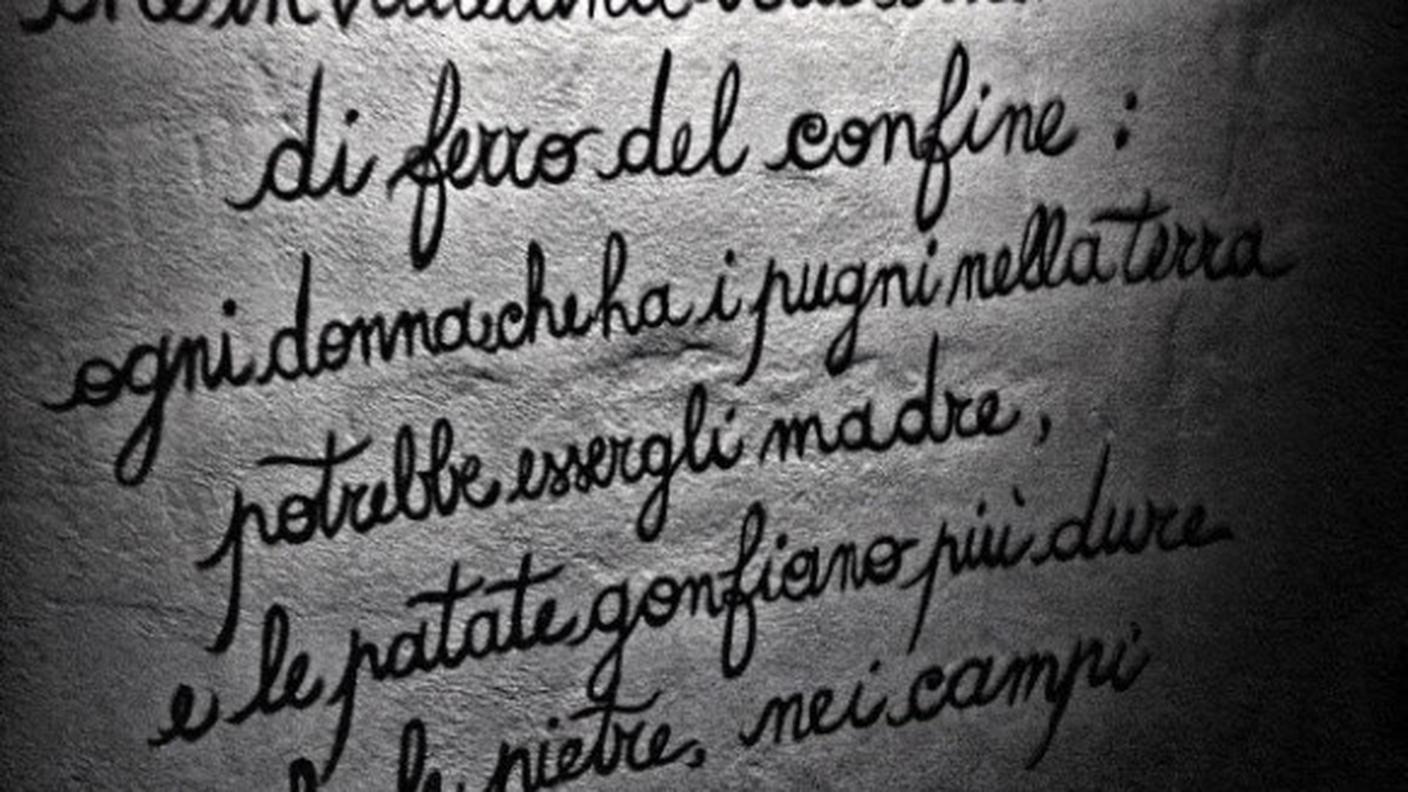 di ferro del confine :
ogni donna che ha i pugni nella terra
potrebbe essergli madre,
e le patate gonfiano più dure
le pietre, nei campi